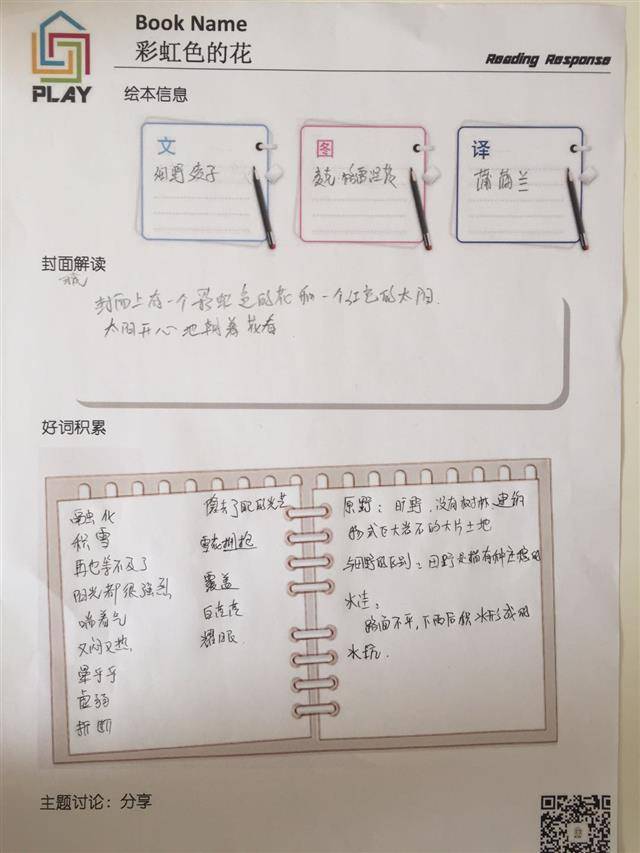 Book Name
彩虹色的花
Reading Response
PLAY
绘本信息
文
图
译
细野绫子
麦克·格雷涅茨
蒲蒲兰
封面解读
封面上有一个彩虹色的花和一个红色的太阳.
太阳开心地朝着花看
好词积累
融化
积雪
再也等不及了
阳光都很强烈
喘着气
又闷又热,
晕乎乎
虚弱
折断
偷去了眼的光芒
雪花拥抱
覆盖
白茫茫
耀眼
原野：旷野，没有树林、建筑
物或巨大岩石的大片土地
与田野的区别：田野是指有种庄稼的
水洼：
路面不平，下雨后积水形成的
水坑.
主题讨论：分享